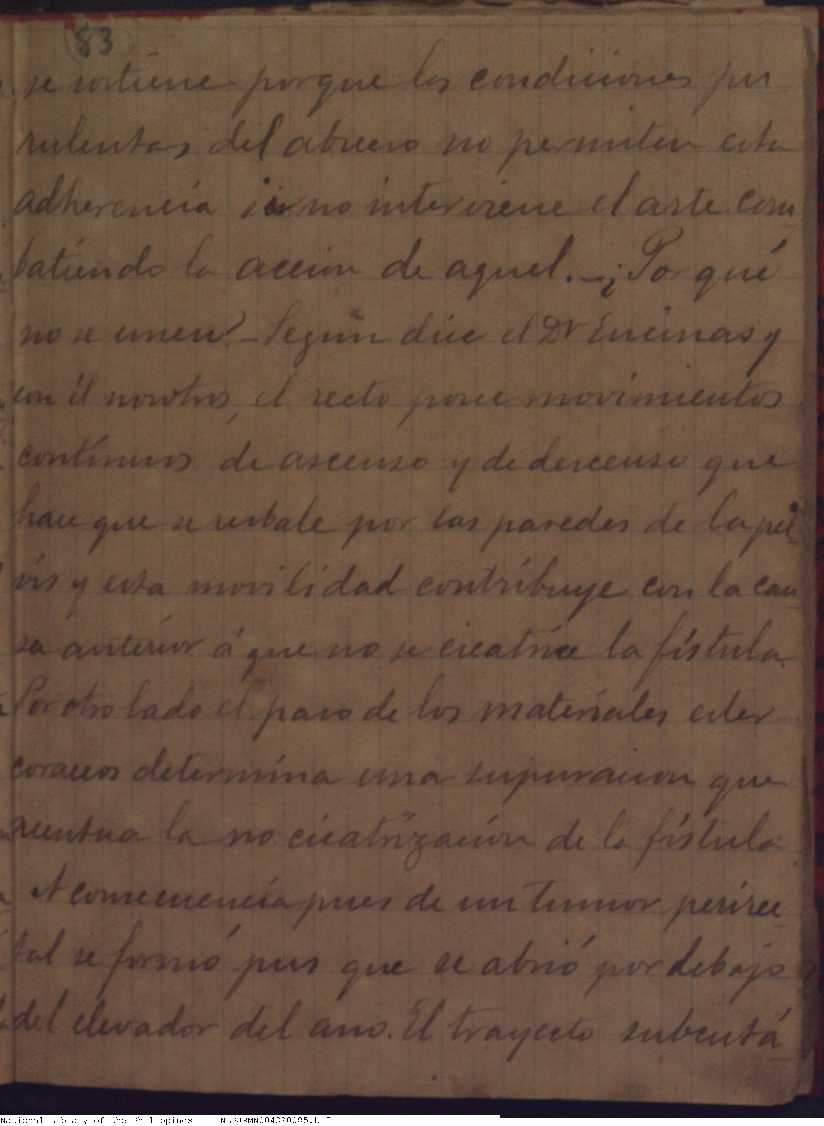 83
se sostiene porque las condiciones pu
rulentas del absceso no permiten esta
adherencia si no interviene el arte com
batiendo la accion de aquel. _ ¿Por qué
no se unen? _ Según dice el Dr Encinas y
con él nosotros, el recto posee movimientos
contínuos de ascenso y de descenso que
hace que se resbale por las paredes de la pel
vis y esta movilidad contribuye con la cau
sa anterior á que no se cicatrice la fístula.
Por otro lado el paso de los materiales ester
coraceos determina una supuracion que
acentua la no cicatrización de la fístula.
A consecuencia pues de un tumor perirec
tal se formó pus que se abrió por debajo
del elevador del ano. El trayecto subcutá
National Library of the Philippines